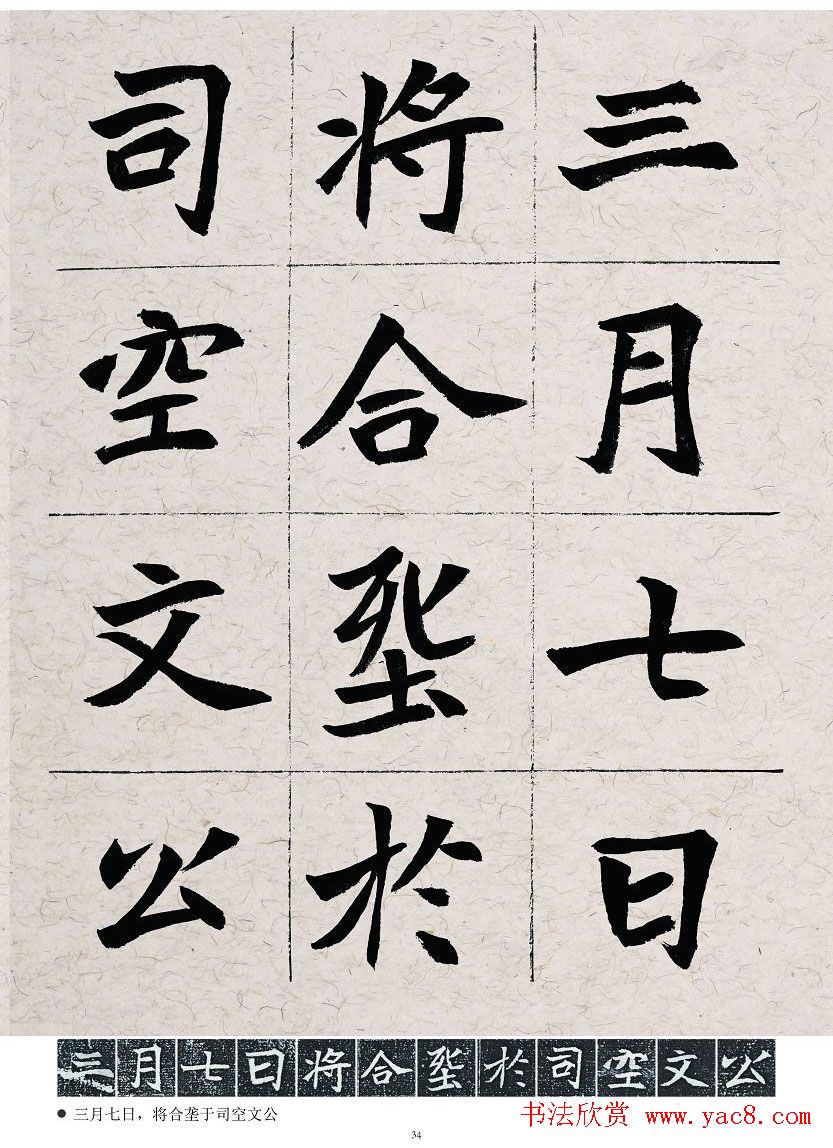 三月七日
将合於
司空文公
三月七日将合於司空文公
● 三月七日，将合垄于司空文公
书法欣赏 www.yac8.com
34